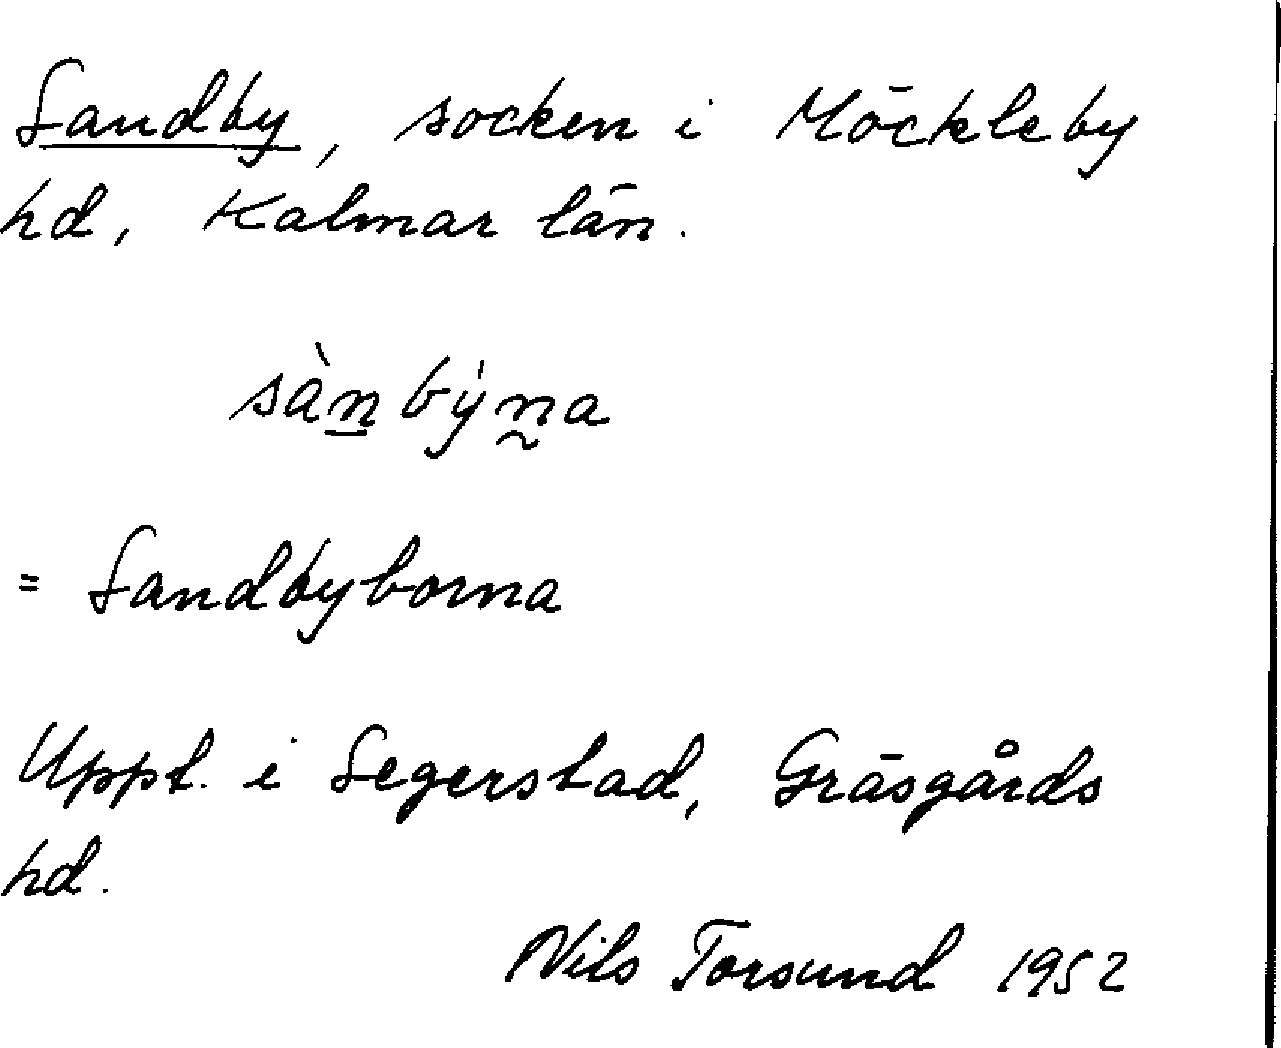 Sandby, socken i Möckleby
hd, Kalmar län.
sàn̲býn̰a
= Sandbyborna
Uppt. i Segerstad, Gräsgårds
hd.
Nils Torsund 1952